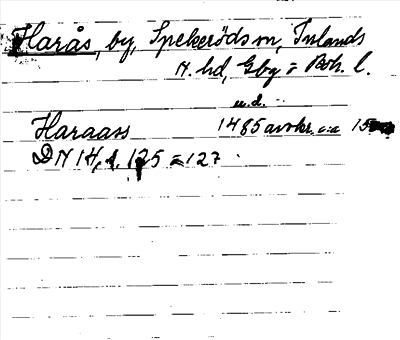 Harås, by, Spekeröds sn, Inlands
N. hd, Gbg = Boh. l.
u.d.
Haraas 1485 avskr.
DN 14, s. 125 = 127